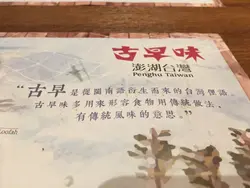 古早味
澎湖台灣
Penghu Taiwan
“古早是從閩南語衍生而來的台灣俗語，
古早味多用來形容食物用傳統做法，
有傳統風味的意思。”